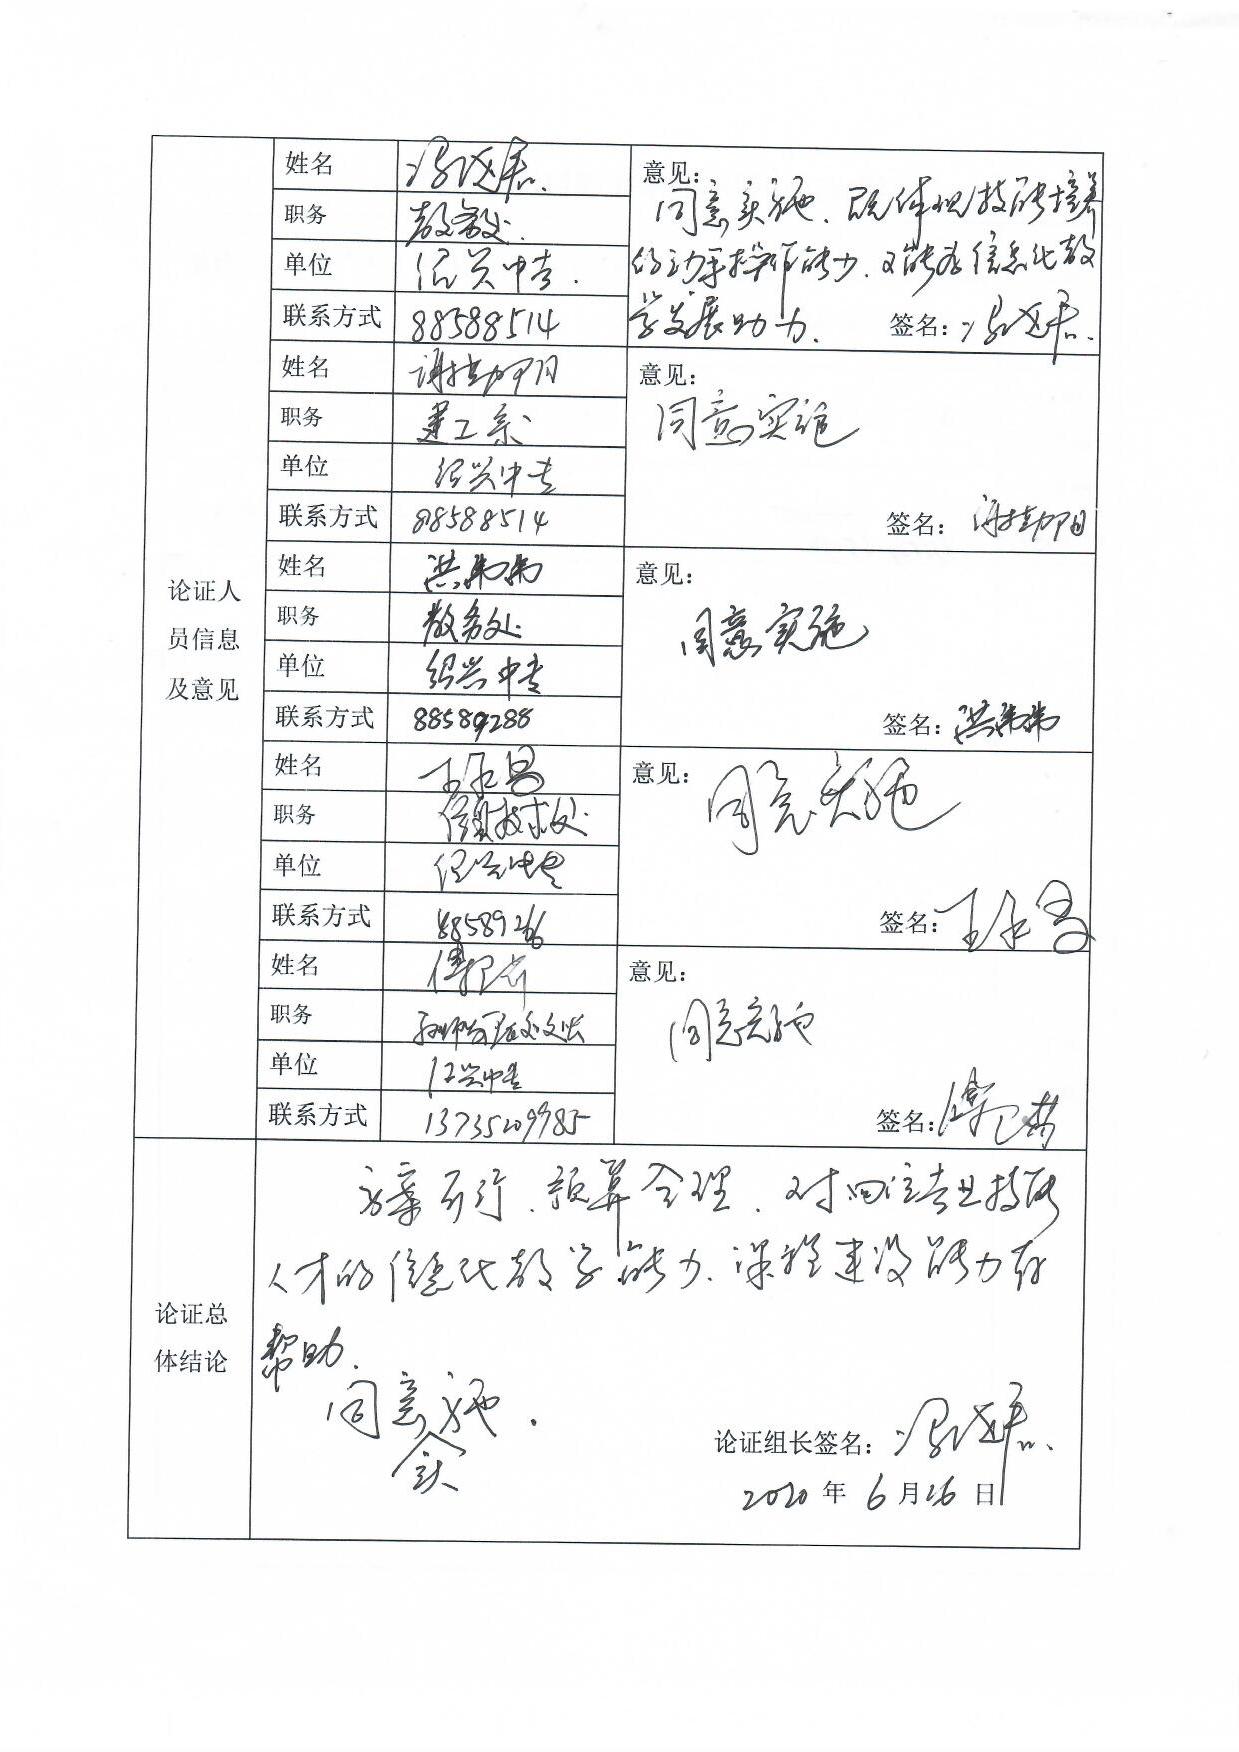 姓名
职务 教务处.
单位 绍兴中专.
联系方式 88588514
意见:
同意实施.既体现技能培养
的动手操作能力.又能为信息化教
学发展助力.
签名:
姓名
职务 建工系
单位 绍兴中专
联系方式 88588514
意见:
同意实施
签名:
论证人
员信息
及意见
姓名 洪弟弟
职务 教务处
单位 绍兴中专
联系方式 88589288
意见:
同意实施
签名: 洪弟弟
姓名 王永昌
职务 信息技术处
单位 绍兴中专
联系方式 88589266
意见:
同意实施
签名: 王永昌
姓名
职务
单位 绍兴中专
联系方式 13735209985
意见:
同意实施
签名:
论证总
体结论
方案可行.预算合理.对 专业技能
人才的信息化教学能力.课程建设能力有
帮助.
同意实施.
论证组长签名:
2020年6月26日